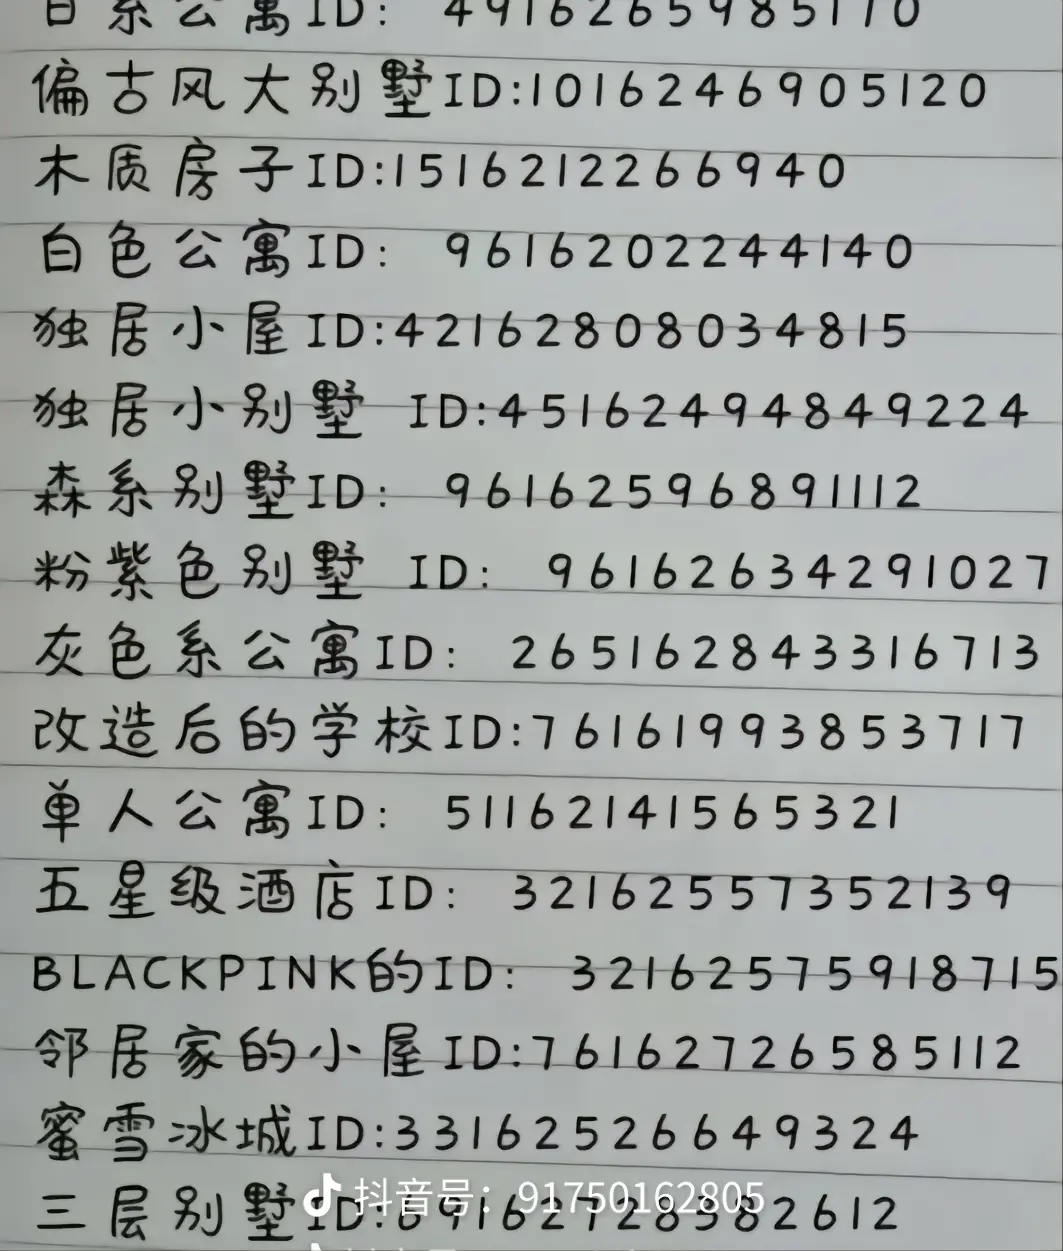 日系公寓ID: 4916265985110
偏古风大别墅ID:1016246905120
木质房子ID:1516212266940
白色公寓ID: 9616202244140
独居小屋ID:42162808034815
独居小别墅 ID:45162494849224
森系别墅ID: 96162596891112
粉紫色别墅 ID: 96162634291027
灰色系公寓ID: 265162843316713
改造后的学校ID:76161993853717
单人公寓ID: 51162141565321
五星级酒店ID: 32162557352139
BLACKPINK的ID: 32162575918715
邻居家的小屋ID:76162726585112
蜜雪冰城ID:33162526649324
三层别墅ID:69162728382612
抖音号：91750162805